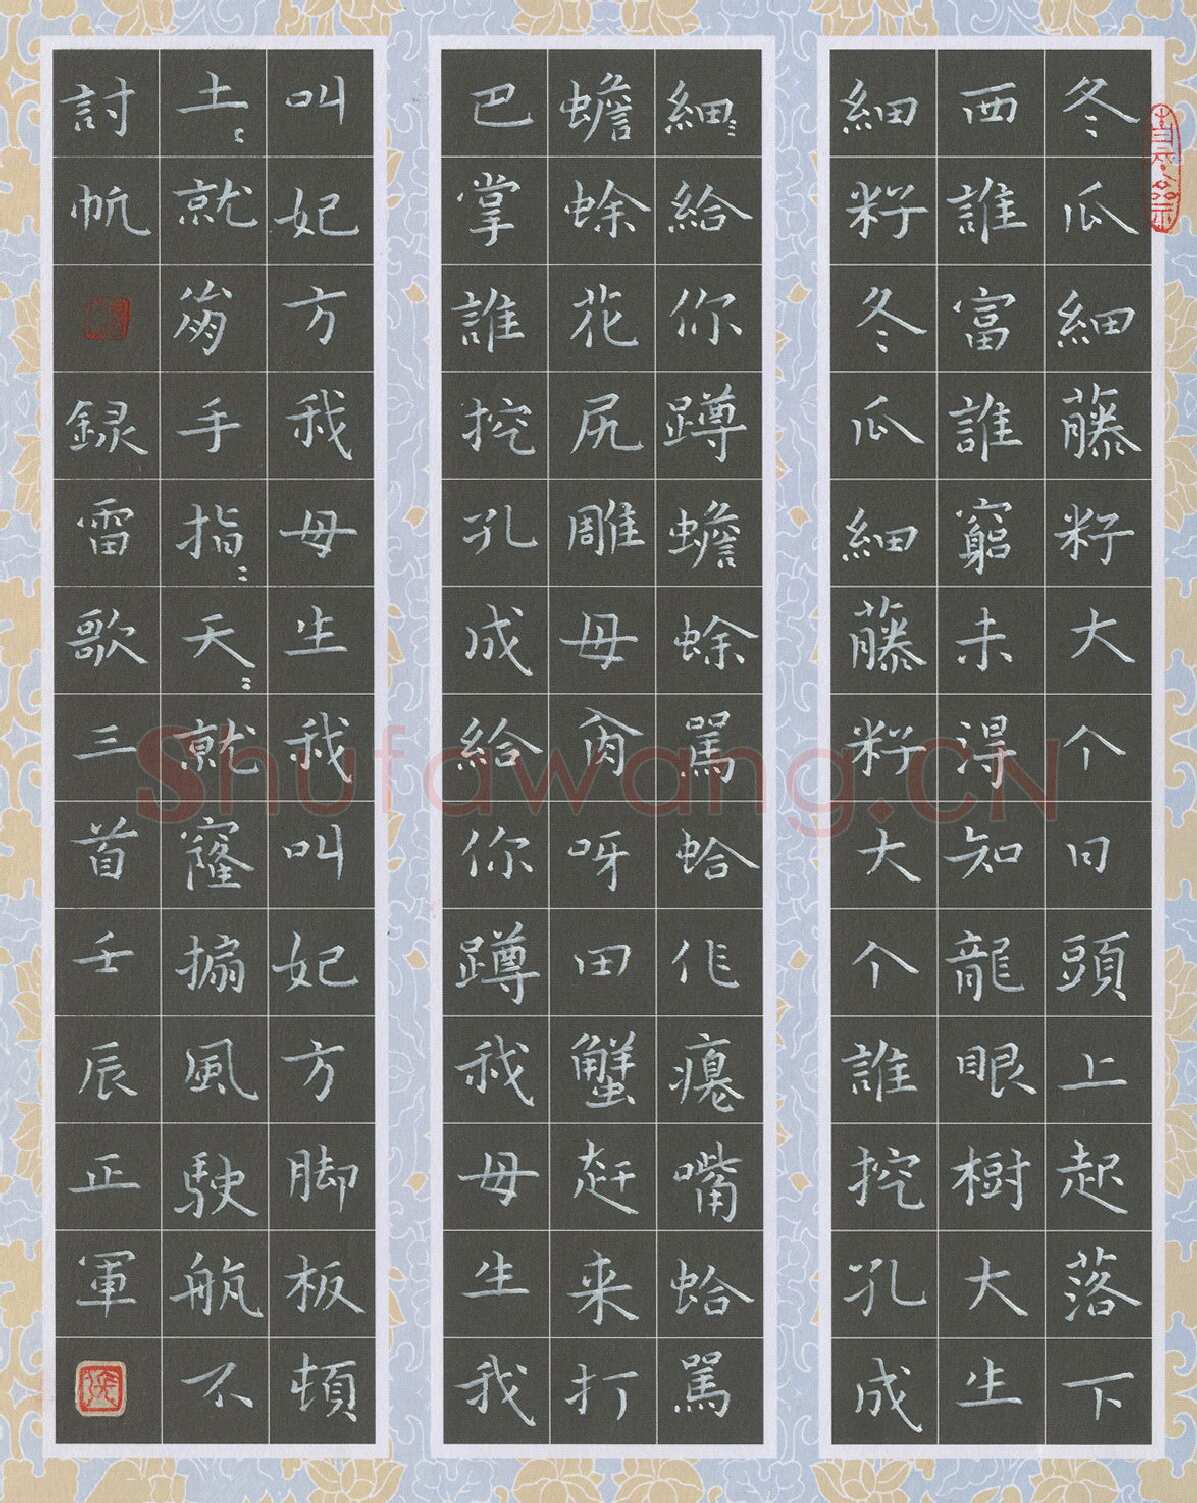 冬瓜細藤籽大个日頭上起落下
西誰富誰窮未得知龍眼樹大生
細籽冬瓜細藤籽大个誰挖孔成
細〻給你蹲蟾蜍罵蛤仛瘪嘴蛤罵
蟾蜍花尻雕母肏呀田蟹赶来打
巴掌誰挖孔成給你蹲我母生我
叫妃方我母生我叫妃方脚板頓
土〻就崩手指〻天〻就窿搧風駛航不
討帆
錄雷歌三首壬辰正軍
Shufawang.CN